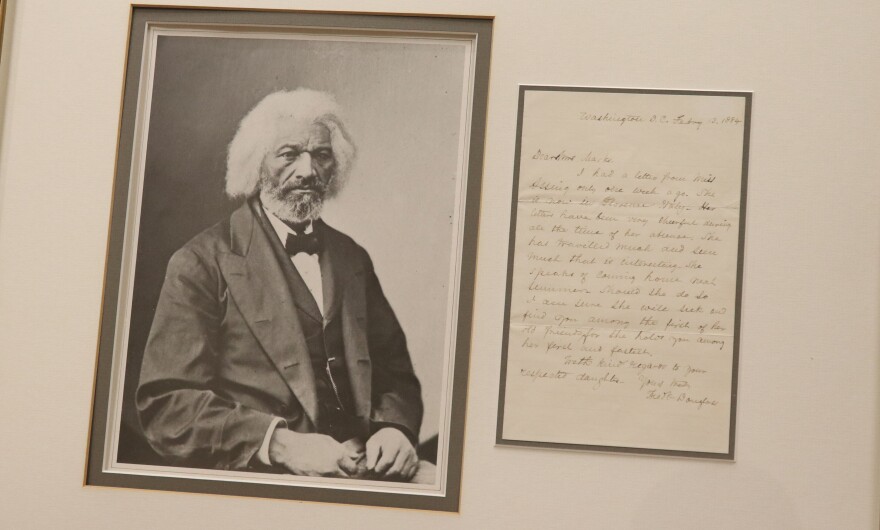 Washington D.C. Feby 1884
Dear Mrs
I had a letter from Miss
Assing only one week ago. She
is now in Florence Italy. Her
letters have been very cheerful during
all the time of her absence. She
has traveled much and seen
much that is interesting. She
speaks of coming home next
summer. Should she do so
I am sure she will seek and
find you among the first of her
old friends for she holds you among
her first and fastest.
With kind regards to your
respected daughter. Yours truly
Fredk Douglass